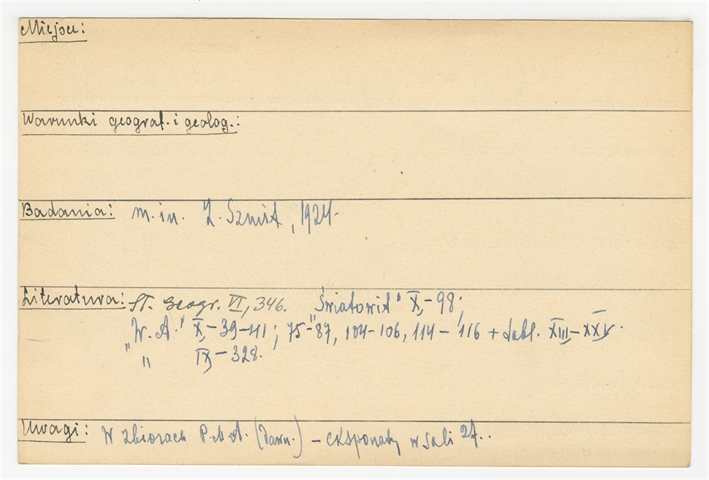 Miejsce:
Warunki geograf. i geolog.:
Badania: m. in. Z. Szmit, 1924.
Literatura: Sł. Geogr. VI, 346. „Światowit" X,- 98;
„W. A." X,- 39-41; 75-87, 104-106, 114-116 + tabl. XIII,-XXV.
„ IX,- 328.
Uwagi: W zbiorach P. M. A. (dawn.) - eksponaty w sali 27..